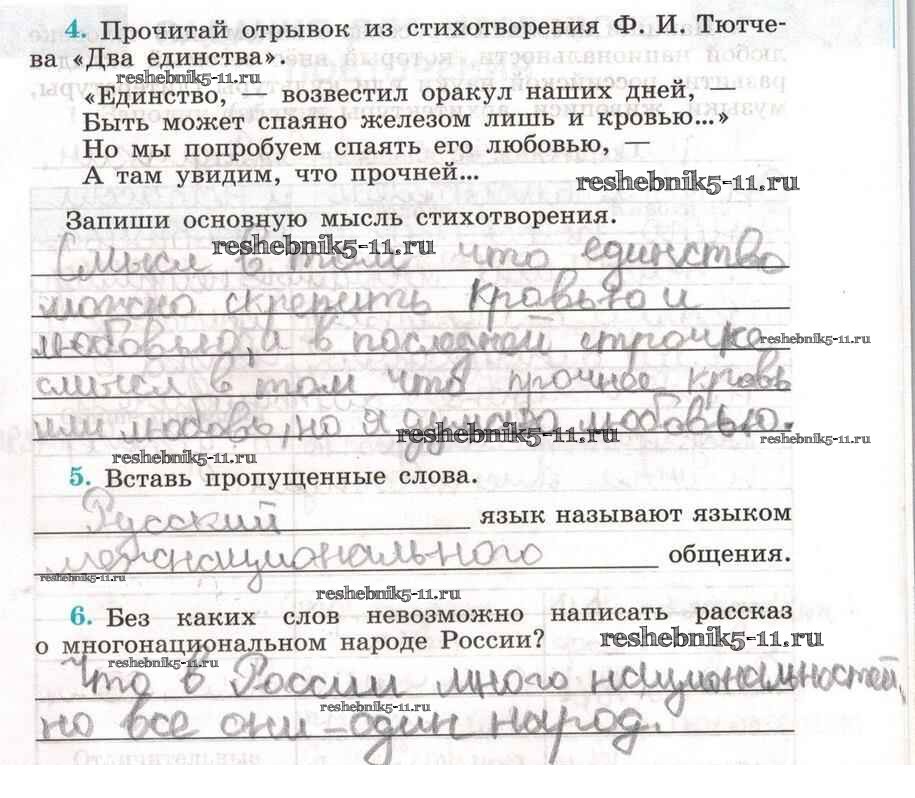 4. Прочитай отрывок из стихотворения Ф. И. Тютче-
ва «Два единства».
reshebnik5-11.ru
«Единство, — возвестил оракул наших дней, —
Быть может спаяно железом лишь и кровью...»
Но мы попробуем спаять его любовью, —
А там увидим, что прочней...
reshebnik5-11.ru
Запиши основную мысль стихотворения.
reshebnik5-11.ru
Смысл в том что единство
можно скрепить кровью и
любовью, а в последней строчке
reshebnik5-11.ru
смысл в том что прочнее кровь
или любовь, но я думаю любовью.
reshebnik5-11.ru
reshebnik5-11.ru
reshebnik5-11.ru
5. Вставь пропущенные слова.
Русский язык называют языком
межнационального общения.
reshebnik5-11.ru
reshebnik5-11.ru
6. Без каких слов невозможно написать рассказ
о многонациональном народе России?
reshebnik5-11.ru
reshebnik5-11.ru
Что в России много национальностей,
но все они – один народ.
reshebnik5-11.ru